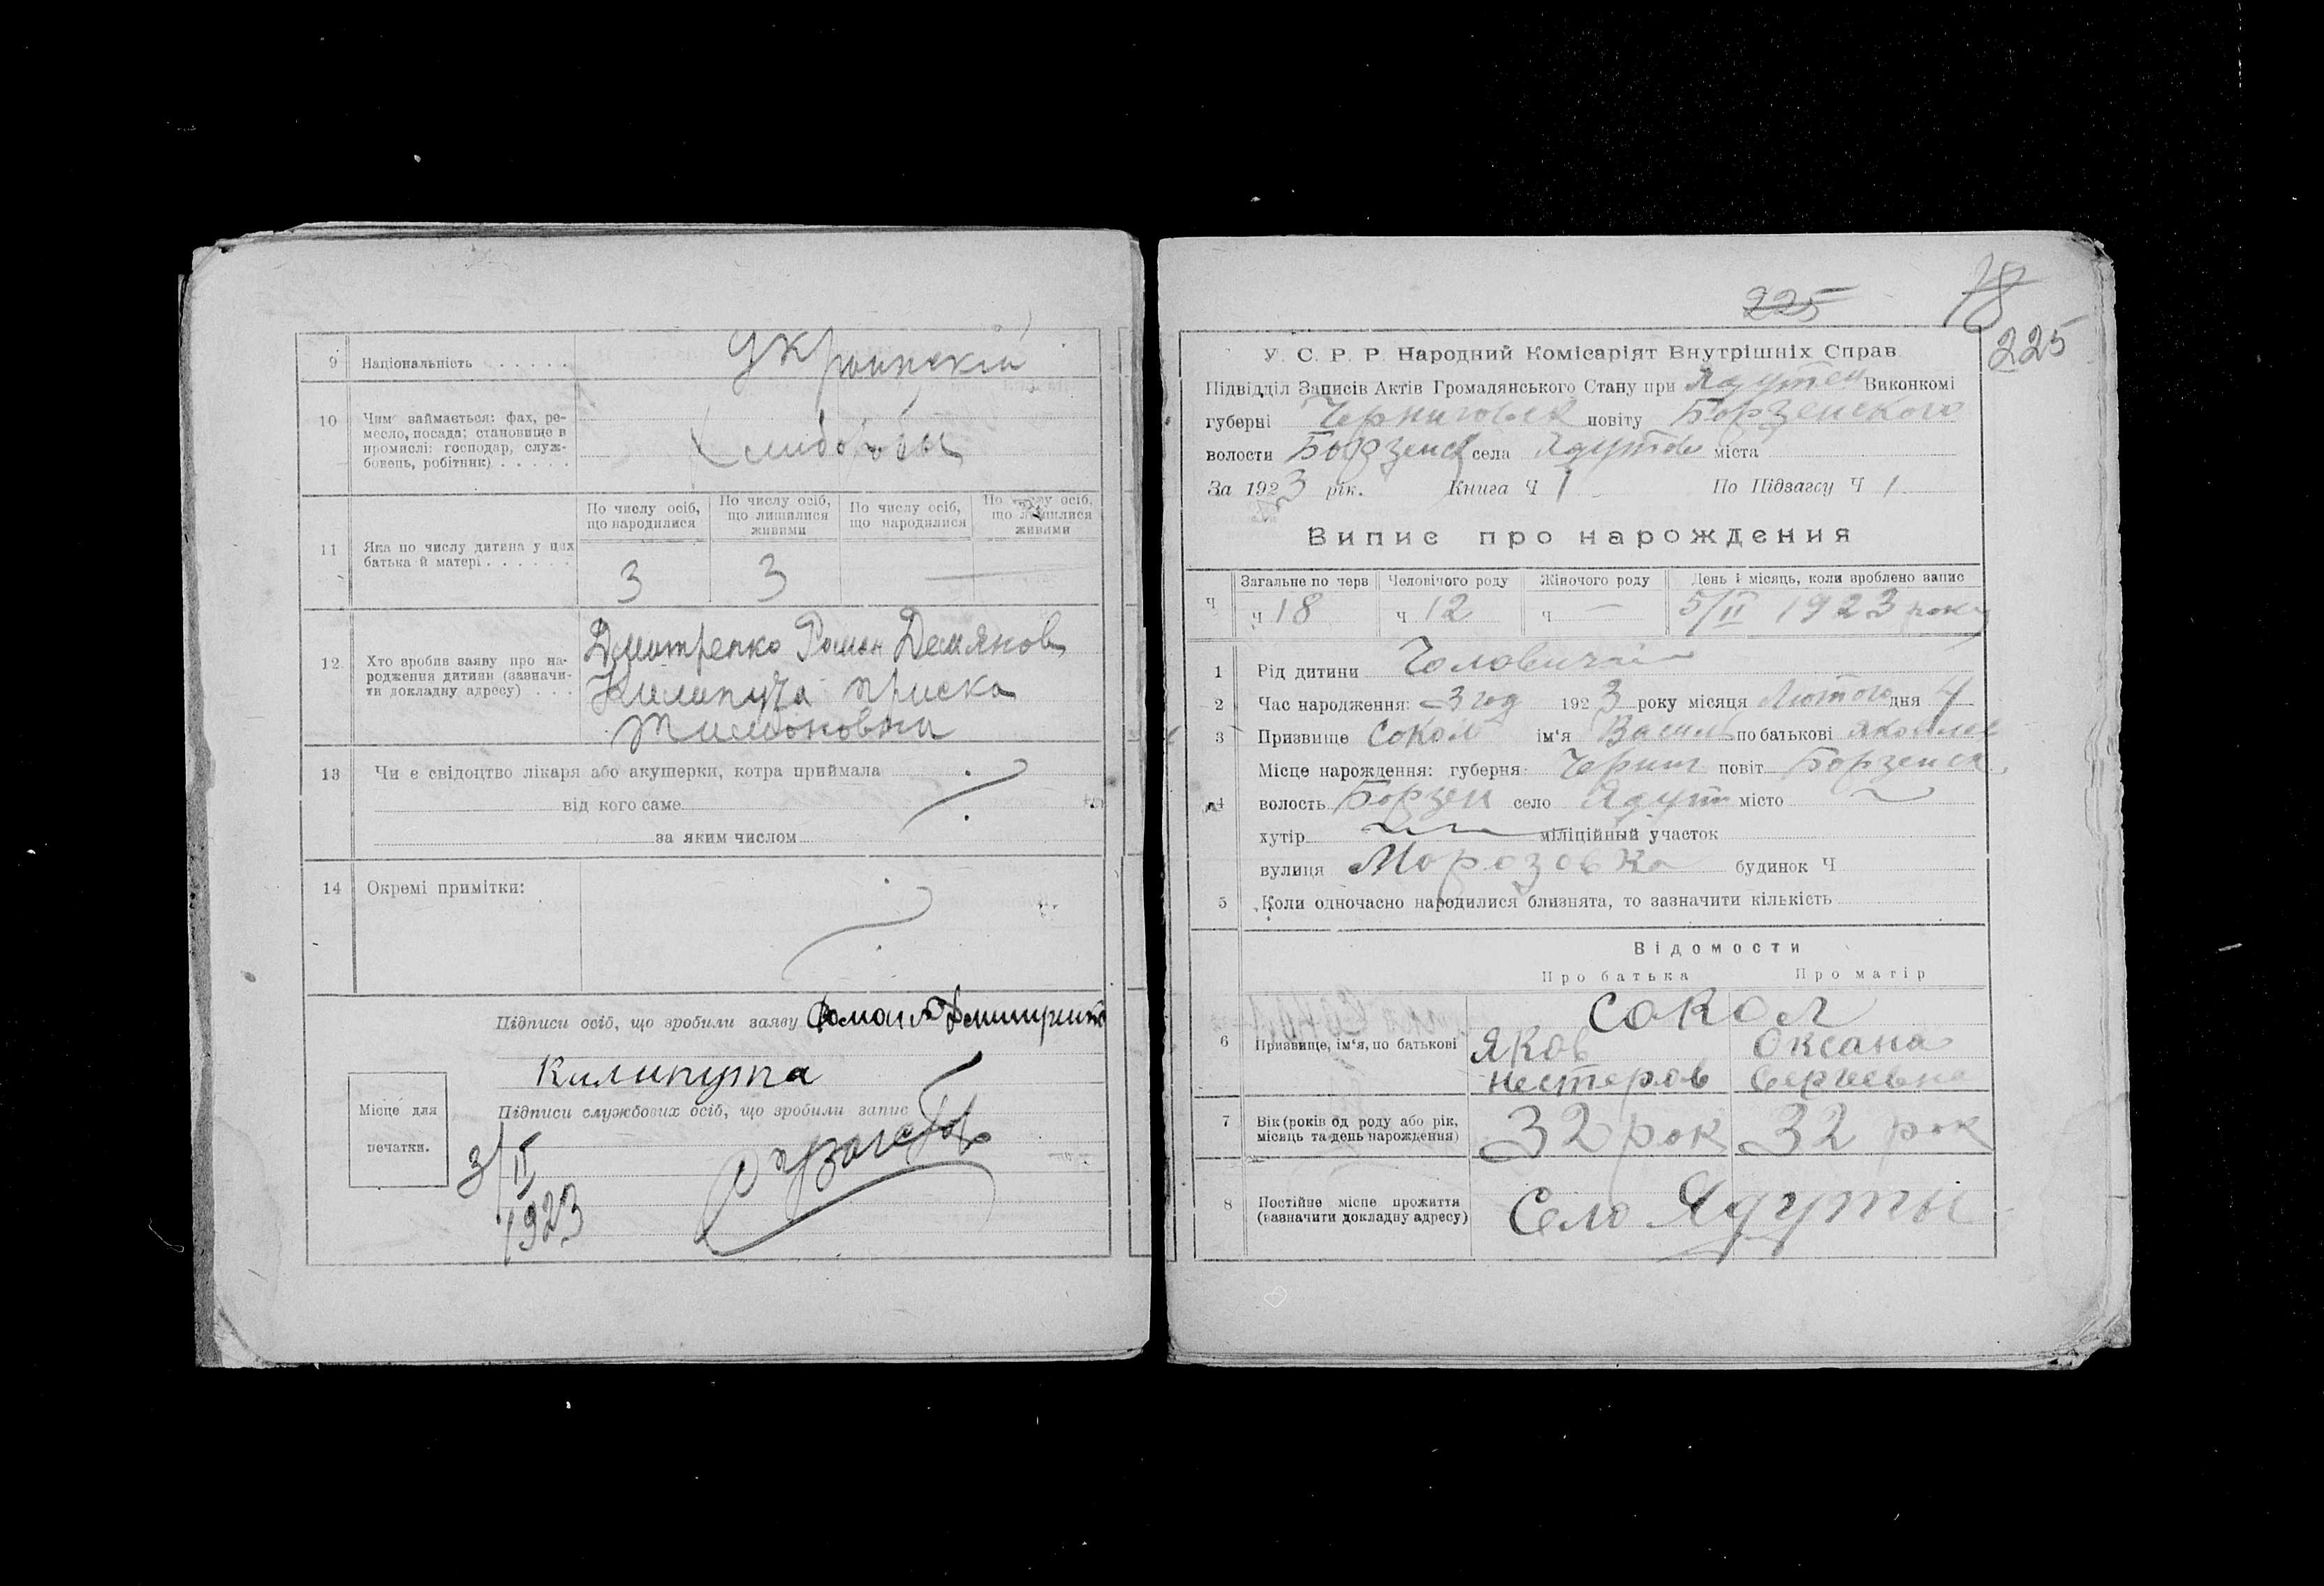 9 Національність . . . . . Украинскій
10 Чим займається: фах, ре-
месло, посада; становище в
промислі: господар, служ-
бовець, робітник) . . . . .
11 Яка по числу дитина у цих
батька й матері . . . . . .
По числу осіб, що народилися
По числу осіб, що лишилися живими
По числу осіб, що народилися
По числу осіб, що лишилися живими
3 3
12 Хто зробив заяву про на-
родження дитини (зазначи-
ти докладну адресу) . . .
Дмитренко Роман Демянов
Килипута Приска
Тимоновна
13 Чи є свідоцтво лікаря або акушерки, котра приймала
від кого саме
за яким числом
14 Окремі примітки:
Підписи осіб, що зробили заяву Роман Дмитренко
Килипута
Підписи службових осіб, що зробили запис
Місце для
печатки.
3/II
1923
225 78
225
У. С. Р. Р. Народний Комісаріят Внутрішніх Справ
Підвідділ Записів Актів Громадянського Стану при Ядутен Виконкомі
губерні Черниговск повіту Борзенского
волости Борзенск села Ядутов міста
За 1923 рік. Книга Ч 1 По Підзагсу Ч 1
Випис про нарождения
Ч Загальне по черв Человічого роду Жіночого роду День і місяць, коли зроблено запис
ч 18 ч 12 ч — 5/II 1923 року
1 Рід дитини Чоловичий
2 Час народження: 3 год 1923 року місяця Лютого дня 4
3 Призвище Сокол ім'я Василь по батькові Яковлев
Місце нарождення: губерня Черниг повіт Борзенск
4 волость Борзен село Ядут місто
хутір міліційный участок
вулиця Морозовка будинок Ч
5 Коли одночасно народилися близнята, то зазначити кількість
Відомости
Про батька Про матір
Сокол
6 Призвище, ім'я, по батькові Яков Оксана
Нестеров Сергеевна
7 Вік (років од роду або рік,
місяць та день нарождення) 32 рок 32 рок
8 Постійне місце прожиття
(зазначити докладну адресу) Село Ядуты